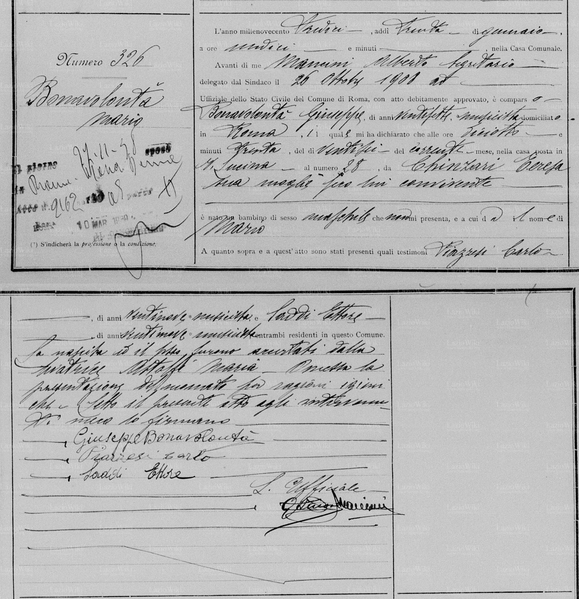 Numero 326
Bonavolontà
Mario
27-11-28
(¹) S'indicherà la professione o la condizione.
L'anno millenovecento tredici, addì trenta di gennaio
a ore undici e minuti, nella Casa Comunale.
Avanti di me Mancini Alberto Segretario
delegato dal Sindaco il 26 Ottobre 1908 ad
Uffiziale dello Stato Civile del Comune di Roma, con atto debitamente approvato, è comparso
Bonavolontà Giuseppe, di anni ventisette, musicista domiciliato
in Roma, il quale mi ha dichiarato che alle ore
minuti trenta del del corrente mese, nella casa posta in
S. Lucina al numero 28, da Chinzari Teresa
sua moglie seco lui convivente
è nato un bambino di sesso maschile che non mi presenta, e a cui dà il nome di
Mario
A quanto sopra e a quest'atto sono stati presenti quali testimoni Piazzesi Carlo
di anni ventinove musicista e Taddi Ettore
di anni ventinove musicista entrambi residenti in questo Comune.
La nascita ed il sesso furono accertati dalla
levatrice Maria. Omessa la
presentazione del neonato per ragioni igieni
che. Letto il presente atto agli intervenu
ti meco lo firmano
Giuseppe Bonavolontà
Piazzesi Carlo
Taddi Ettore
L'Uffiziale
Mancini